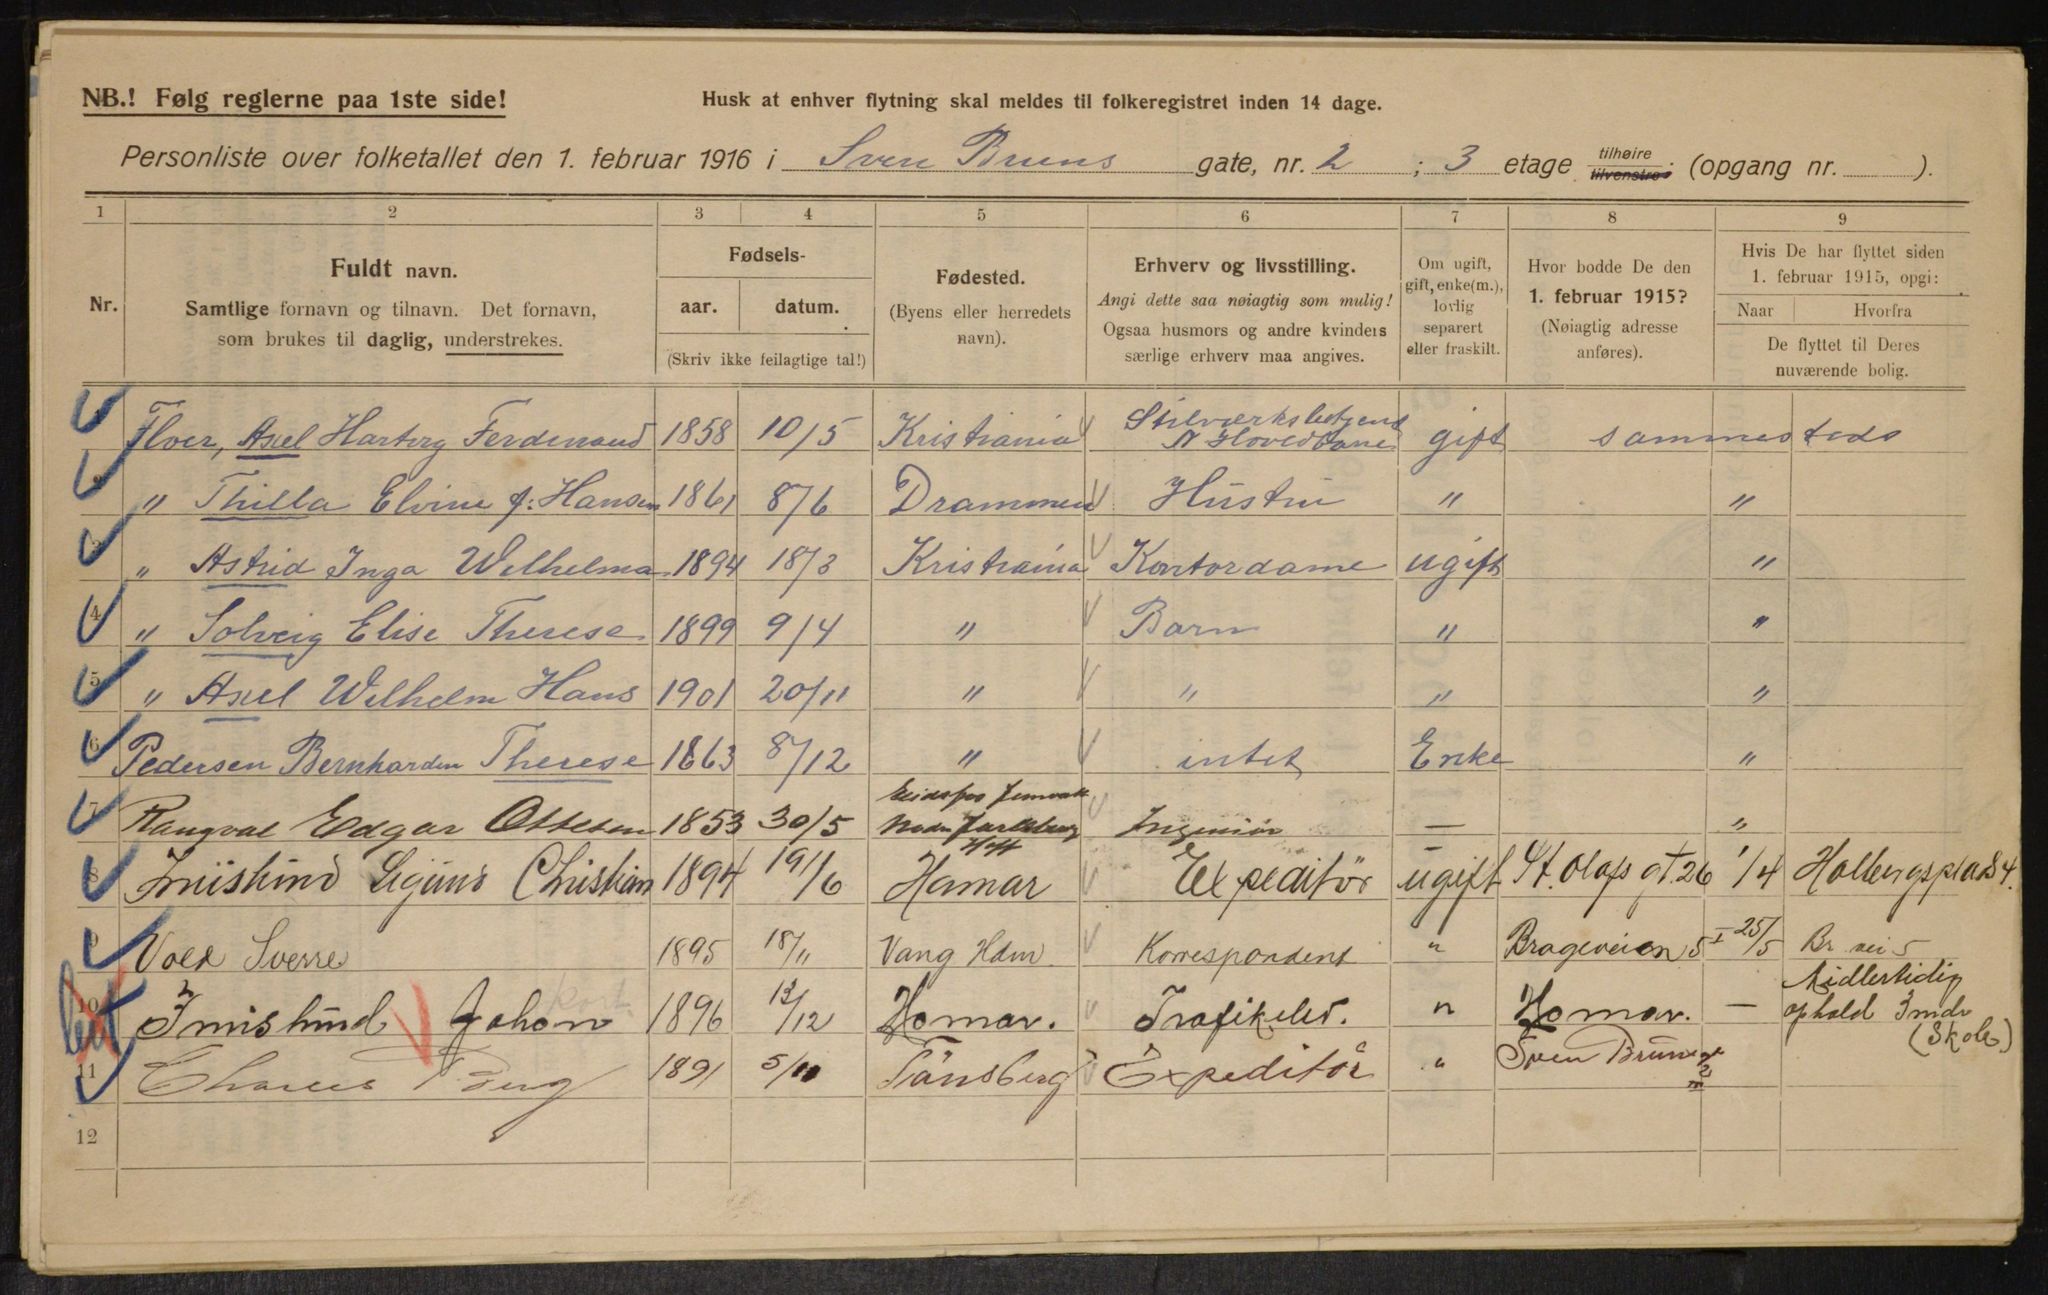 NB.! Følg reglerne paa 1ste side!
Husk at enhver flytning skal meldes til folkeregistret inden 14 dage.
Personliste over folketallet den 1. februar 1916 i Sven Bruns gate, nr. 2 ; 3 etage tilhøire tilvenstre. (opgang nr. ).
1 2 3 4 5 6 7 8 9
Nr.
Fuldt navn.
Samtlige fornavn og tilnavn. Det fornavn,
som brukes til daglig, understrekes.
Fødsels-
aar. datum.
(Skriv ikke feilagtige tal!)
Fødested.
(Byens eller herredets
navn).
Erhverv og livsstilling.
Angi dette saa nøiagtig som mulig!
Ogsaa husmors og andre kvinders
særlige erhverv maa angives.
Om ugift,
gift, enke(m.),
lovlig
separert
eller fraskilt.
Hvor bodde De den
1. februar 1915?
(Nøiagtig adresse
anføres).
Hvis De har flyttet siden
1. februar 1915, opgi:
Naar Hvorfra
De flyttet til Deres
nuværende bolig.
Floer, Axel Hartvig Ferdinand 1858 10/5 Kristiania N Hovedbane gift sammesteds
" Thilla Elvine f: Hansen 1861 8/6 Drammen Hustru " "
3 " Astrid Inga Wilhelma 1894 18/3 Kristiania Kontordame ugift "
4 " Solveig Elise Therese 1899 9/4 " Barn " "
5 " Axel Wilhelm Hans 1901 20/11 " " " "
6 Pedersen Bernhardin Therese 1863 8/12 " intet Enke "
7 Edgar Ottesen 1853 30/5 Ingeniør — "
8 Imislund Sigurd Christian 1894 19/6 Hamar Expeditør ugift St. Olafs gt. 26 1/4 Holbergsplads 4.
9 Vold Sverre 1895 18/11 Vang Hdm Korrespondent " Brageveien 5 I 25/5 Br vei 5
10 Imislund Johan 1896 12/12 Hamar. Trafikelev. " Hamar. — Midlertidig
ophold
(Skole)
11 Charles Berg 1891 5/11 Tønsberg Expeditør " Sven Brunsgt 2 III
12